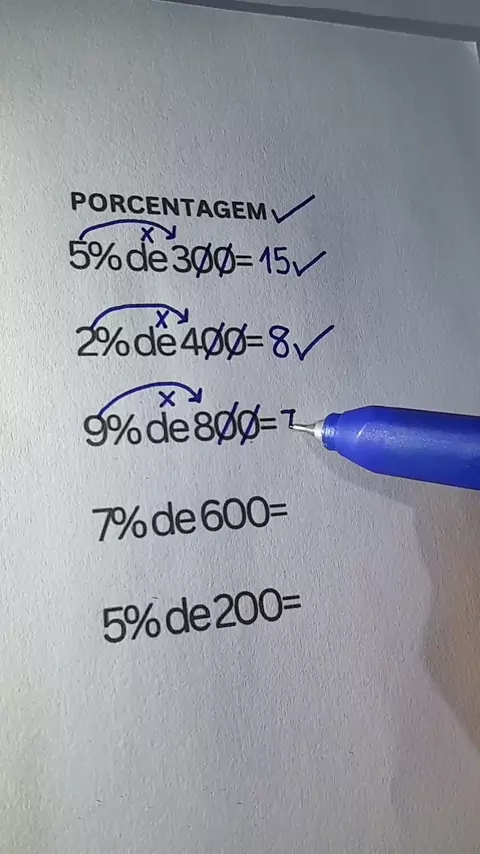 PORCENTAGEM ✓
x
5% de 300= 15 ✓
x
2% de 400= 8 ✓
x
9% de 800= 7
7% de 600=
5% de 200=